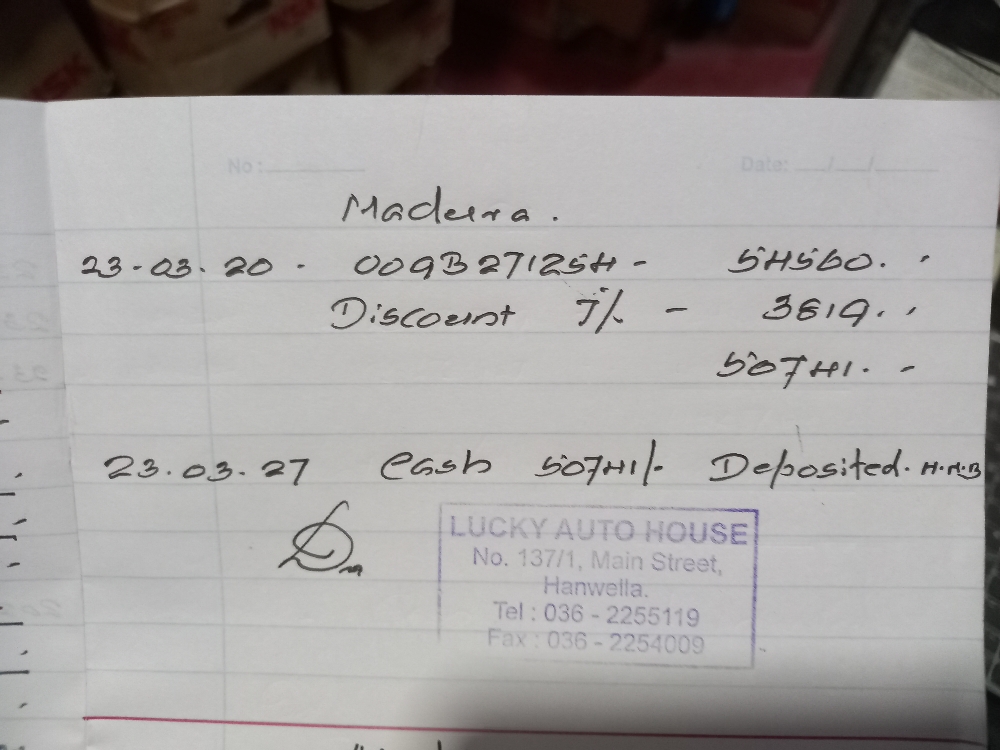 No :
Date: __/__/__
Madeira.
23-03.20 - 009B271254 - 54560. -
Discount 7% - 3819. -
50741. -
23.03.27 Cash 50741/- Deposited. H.N.B
LUCKY AUTO HOUSE
No. 137/1, Main Street,
Hanwella.
Tel : 036 - 2255119
Fax : 036 - 2254009